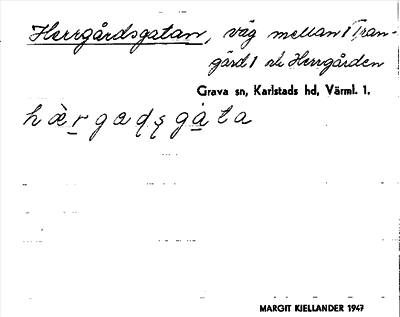 Herrgårdsgatan, väg mellan Tran-
gård 1 o. Herrgården
Grava sn, Karlstads hd, Värml. l.
hæ̀rgadsgàta
MARGIT KJELLANDER 1947